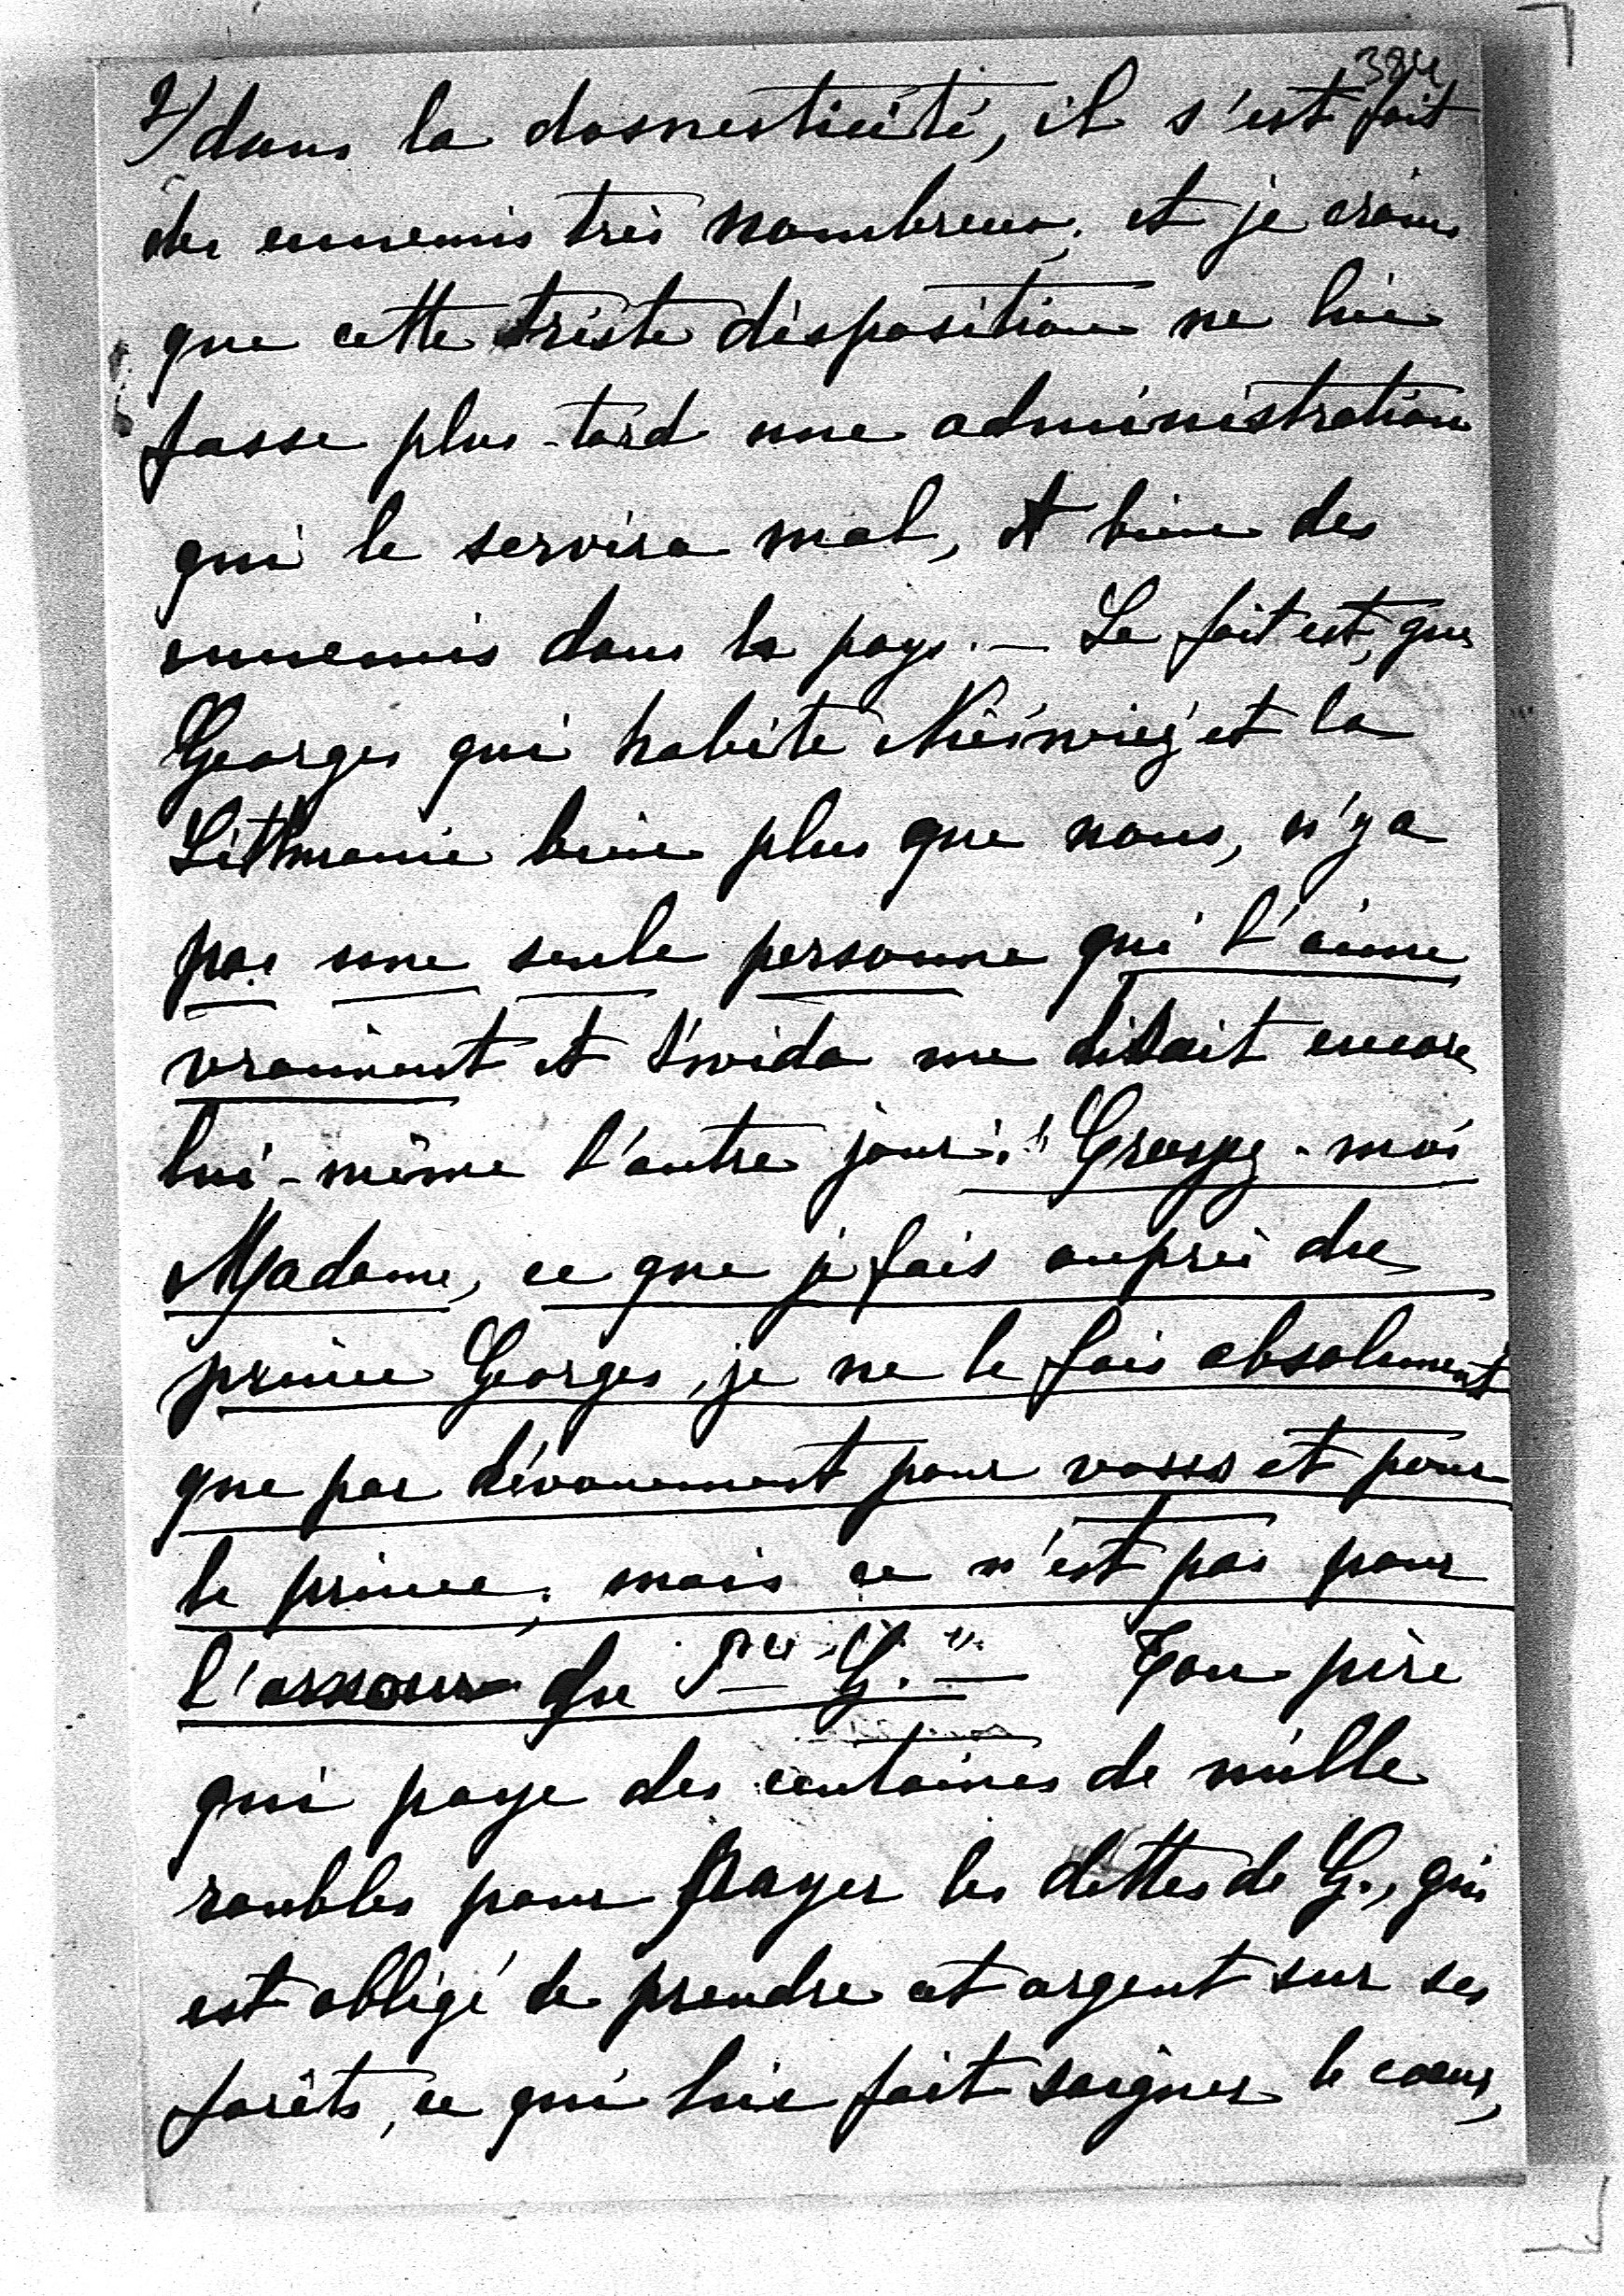 2/ dans la domesticité, il s'est fait
des ennemis très nombreux, et je crains
que cette triste disposition ne lui
fasse plus-tard une administration
qui le servira mal, et bien des
ennemis dans le pays. — Le fait est, que
Georges qui habite Niéswiez et la
Lithuanie bien plus que nous, n'y a
pas une seule personne qui l'aime
vraiment et me disait encore
lui-même l'autre jour: "Croyez-moi
Madame, ce que je fais auprès du
prince Georges, je ne le fais absolument
que par dévouement pour vous et pour
le prince, mais ce n'est pas pour
l'amour du Pce G." — Ton père
qui paye des centaines de mille
roubles pour payer les dettes de G., qui
est obligé de prendre cet argent sur ses
forêts, ce qui lui fait saigner le cœur,